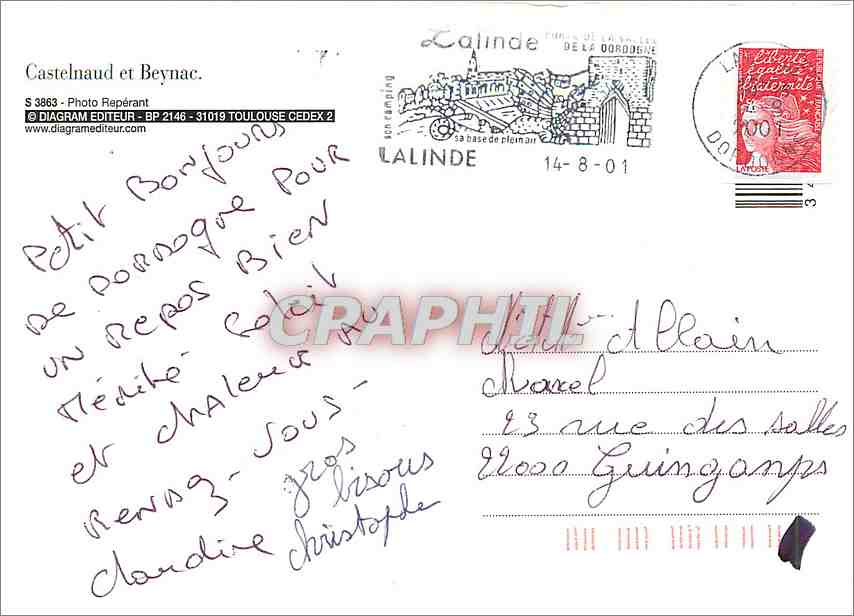 Castelnaud et Beynac.
S 3863 - Photo Repérant
© DIAGRAM EDITEUR - BP 2146 - 31019 TOULOUSE CEDEX 2
www.diagramediteur.com
Lalinde
PORTE DE LA VALLEE
DE LA DORDOGNE
son camping
sa base de plein air
LALINDE
14-8-01
2001
DORDOGNE
liberté
égalité
fraternité
LA POSTE
Petit Bonjour
DE DORDOGNE POUR
UN REPOS BIEN
Mérité. Soleil
et CHALEUR AU
RENDEZ-VOUS -
claudine
gros
bisous
christophe
CPAPHIL
Allain
Marcel
23 rue des salles
22000 Guingamps